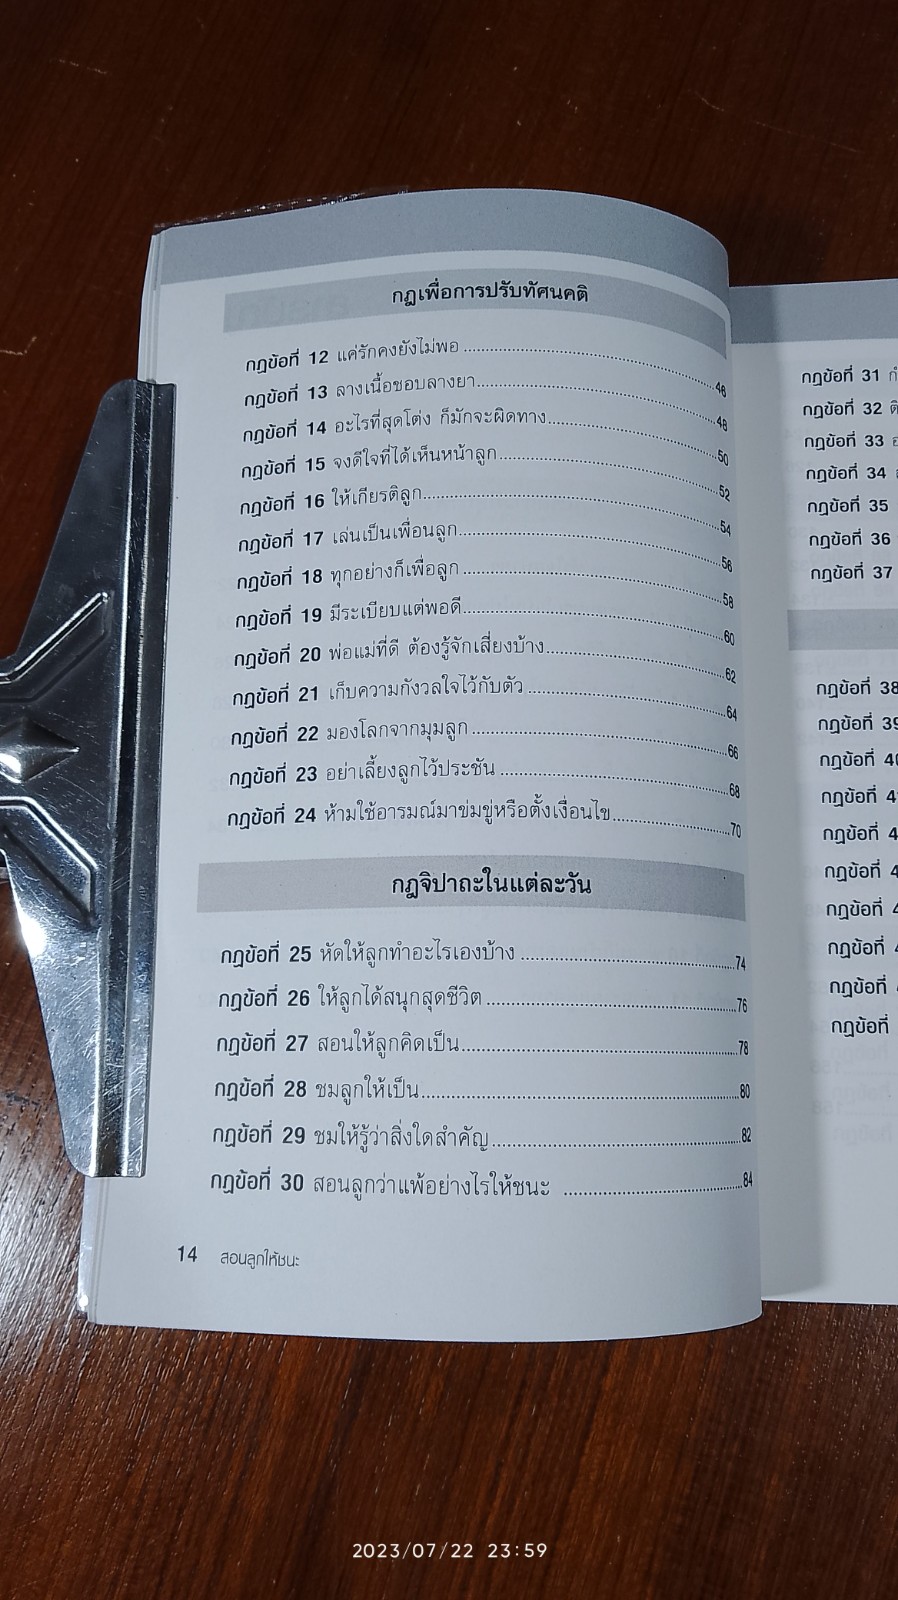 กฎเพื่อการปรับทัศนคติ
กฎข้อที่ 12 แค่รักคงยังไม่พอ........................................46
กฎข้อที่ 13 ลางเนื้อชอบลางยา........................................48
กฎข้อที่ 14 อะไรที่สุดโต่ง ก็มักจะผิดทาง........................................50
กฎข้อที่ 15 จงดีใจที่ได้เห็นหน้าลูก........................................52
กฎข้อที่ 16 ให้เกียรติลูก........................................54
กฎข้อที่ 17 เล่นเป็นเพื่อนลูก........................................56
กฎข้อที่ 18 ทุกอย่างก็เพื่อลูก........................................58
กฎข้อที่ 19 มีระเบียบแต่พอดี........................................60
กฎข้อที่ 20 พ่อแม่ที่ดี ต้องรู้จักเสี่ยงบ้าง........................................62
กฎข้อที่ 21 เก็บความกังวลใจไว้กับตัว........................................64
กฎข้อที่ 22 มองโลกจากมุมลูก........................................66
กฎข้อที่ 23 อย่าเลี้ยงลูกไว้ประชัน........................................68
กฎข้อที่ 24 ห้ามใช้อารมณ์มาข่มขู่หรือตั้งเงื่อนไข........................................70
กฎจิปาถะในแต่ละวัน
กฎข้อที่ 25 หัดให้ลูกทำอะไรเองบ้าง........................................74
กฎข้อที่ 26 ให้ลูกได้สนุกสุดชีวิต........................................76
กฎข้อที่ 27 สอนให้ลูกคิดเป็น........................................78
กฎข้อที่ 28 ชมลูกให้เป็น........................................80
กฎข้อที่ 29 ชมให้รู้ว่าสิ่งใดสำคัญ........................................82
กฎข้อที่ 30 สอนลูกว่าแพ้อย่างไรให้ชนะ........................................84
14 สอนลูกให้ชนะ
กฎข้อที่ 31
กฎข้อที่ 32
กฎข้อที่ 33
กฎข้อที่ 34
กฎข้อที่ 35
กฎข้อที่ 36
กฎข้อที่ 37
กฎข้อที่ 38
กฎข้อที่ 39
กฎข้อที่
กฎข้อที่
กฎข้อที่
กฎข้อที่
กฎข้อที่
กฎข้อที่
กฎข้อที่
กฎข้อที่
2023/07/22 23:59